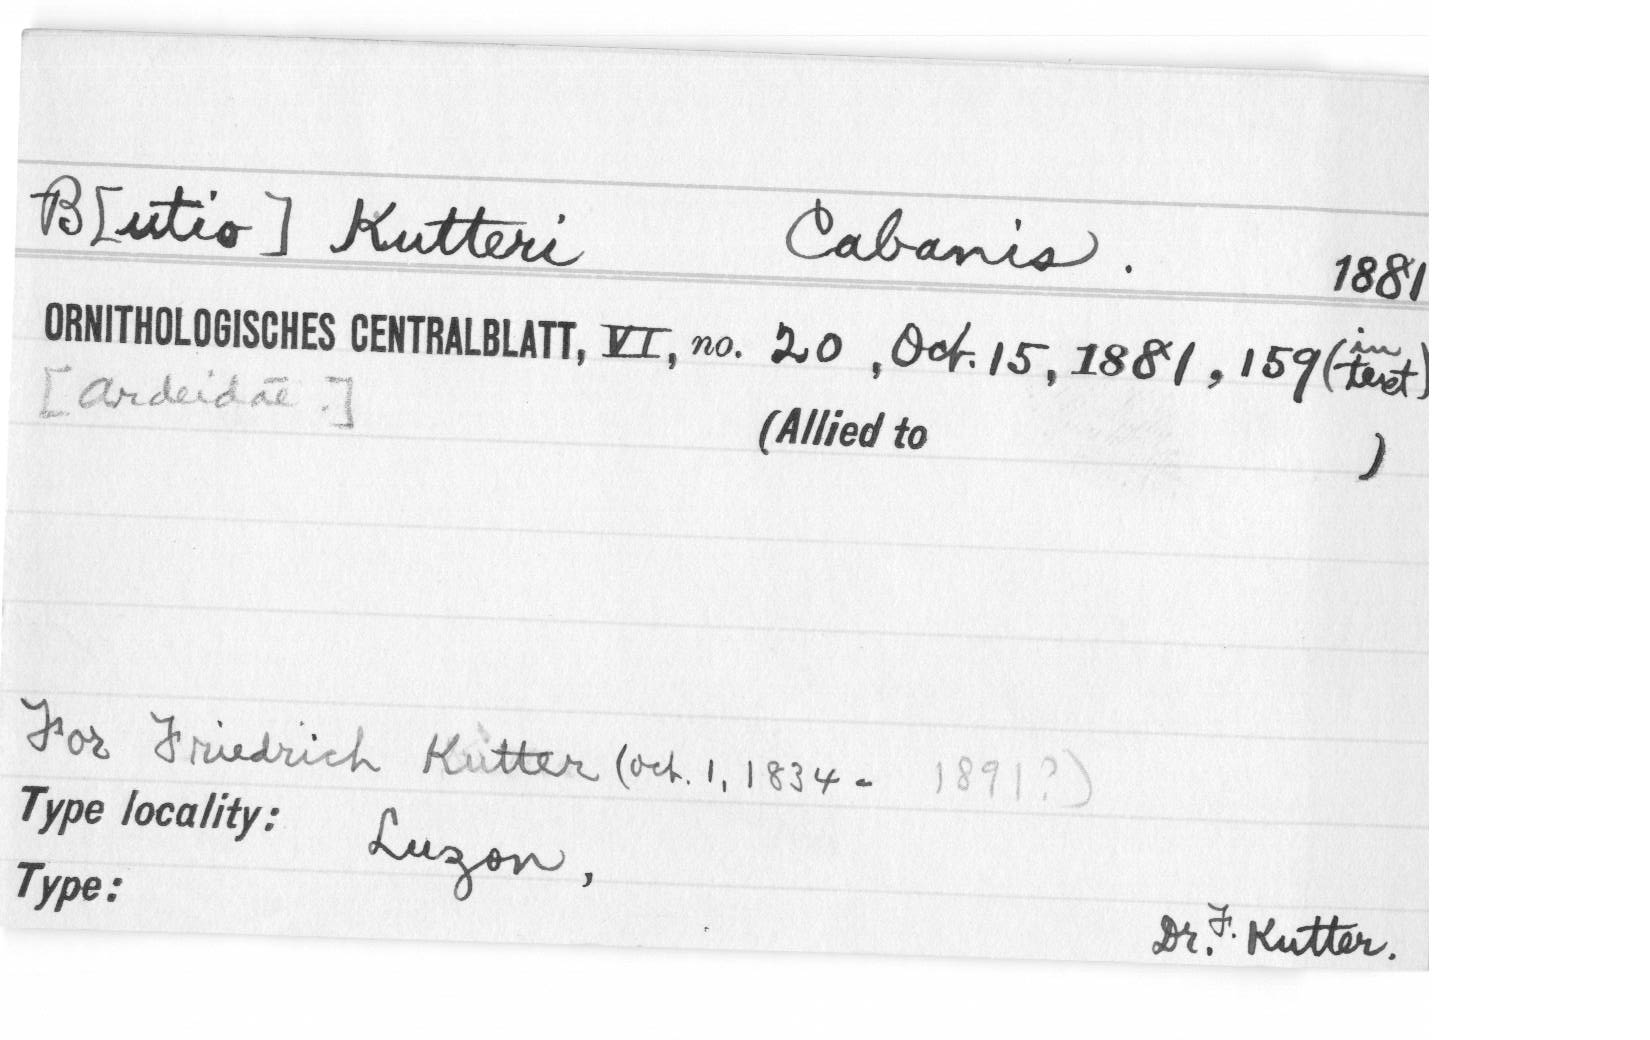 B[utio] Kutteri Cabanis. 1881
ORNITHOLOGISCHES CENTRALBLATT, VI, no. 20, Oct. 15, 1881, 159 (in text)
[Ardeidae.]
(Allied to )
For Friedrich Kutter (Oct. 1, 1834 - 1891?)
Type locality: Luzon,
Type:
Dr. F. Kutter.